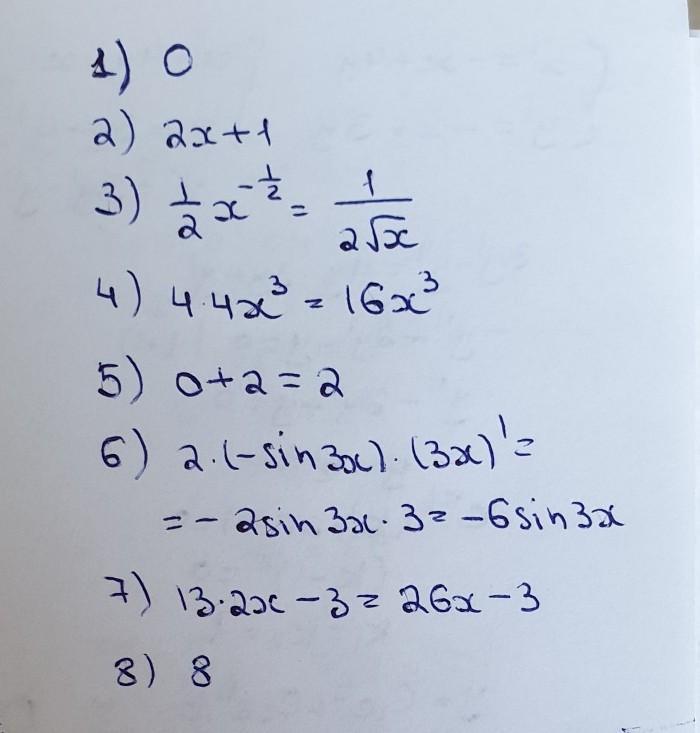 1) 0
2) 2x+1
3) \frac{1}{2} x^{-\frac{1}{2}} = \frac{1}{2\sqrt{x}}
4) 4·4x³ = 16x³
5) 0+2=2
6) 2·(-sin3x)·(3x)' =
= - 2sin3x·3 = -6sin3x
7) 13·2x-3 = 26x-3
8) 8